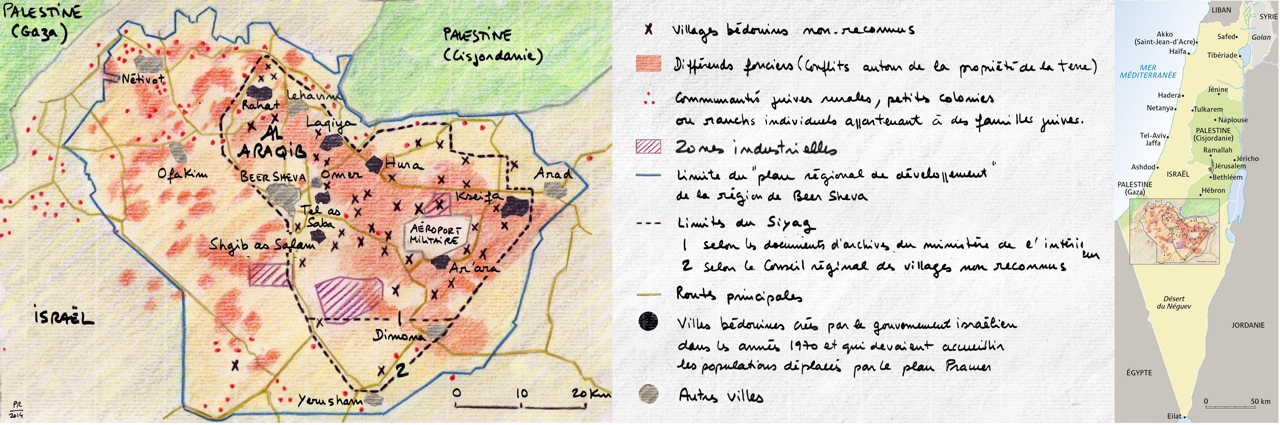 PALESTINE
(Gaza)
PALESTINE
(Cisjordanie)
Nétivot
Rahat
Lehavim
Laqiya
AL
ARAQIB
Hura
Ofakim
BEER SHEVA
Omer
Arad
Kseifa
Tel as
Saba
AÉROPORT
MILITAIRE
Shgib as Salam
Ar'ara
ISRAËL
1
Dimona
2
Yerusham
PR
2014
0 10 20 Km
Villages bédouins non-reconnus
Différends fonciers (Conflits autour de la propriété de la terre)
Communauté juives rurales, petits colonies
ou ranchs individuels appartenant à des familles juives.
Zones industrielles
Limite du "plan régional de dévelloement"
de la région de Beer Sheva
Limits du Siyag
1 selon les documents d'archives du ministère de l'intérieur
2 selon le Conseil régional des villages non reconnus
Routes principales
Villes bédouines crés par le gouvernement israélien
dans les années 1970 et qui devaient accueillir
les populations déplacés par le plan Prawer
Autres villes
LIBAN
SYRIE
Akko
(Saint-Jean-d'Acre)
Safed
Golan
Haïfa
Tibériade
MER
MÉDITERRANÉE
Jénine
Hadera
Netanya
Tulkarem
Naplouse
Tel-Aviv
Jaffa
PALESTINE
(Cisjordanie)
Ramallah
Jéricho
Ashdod
ISRAËL
Jérusalem
Bethléem
PALESTINE
(Gaza)
Hébron
Désert
du Néguev
JORDANIE
ÉGYPTE
Eilat
0 50 km